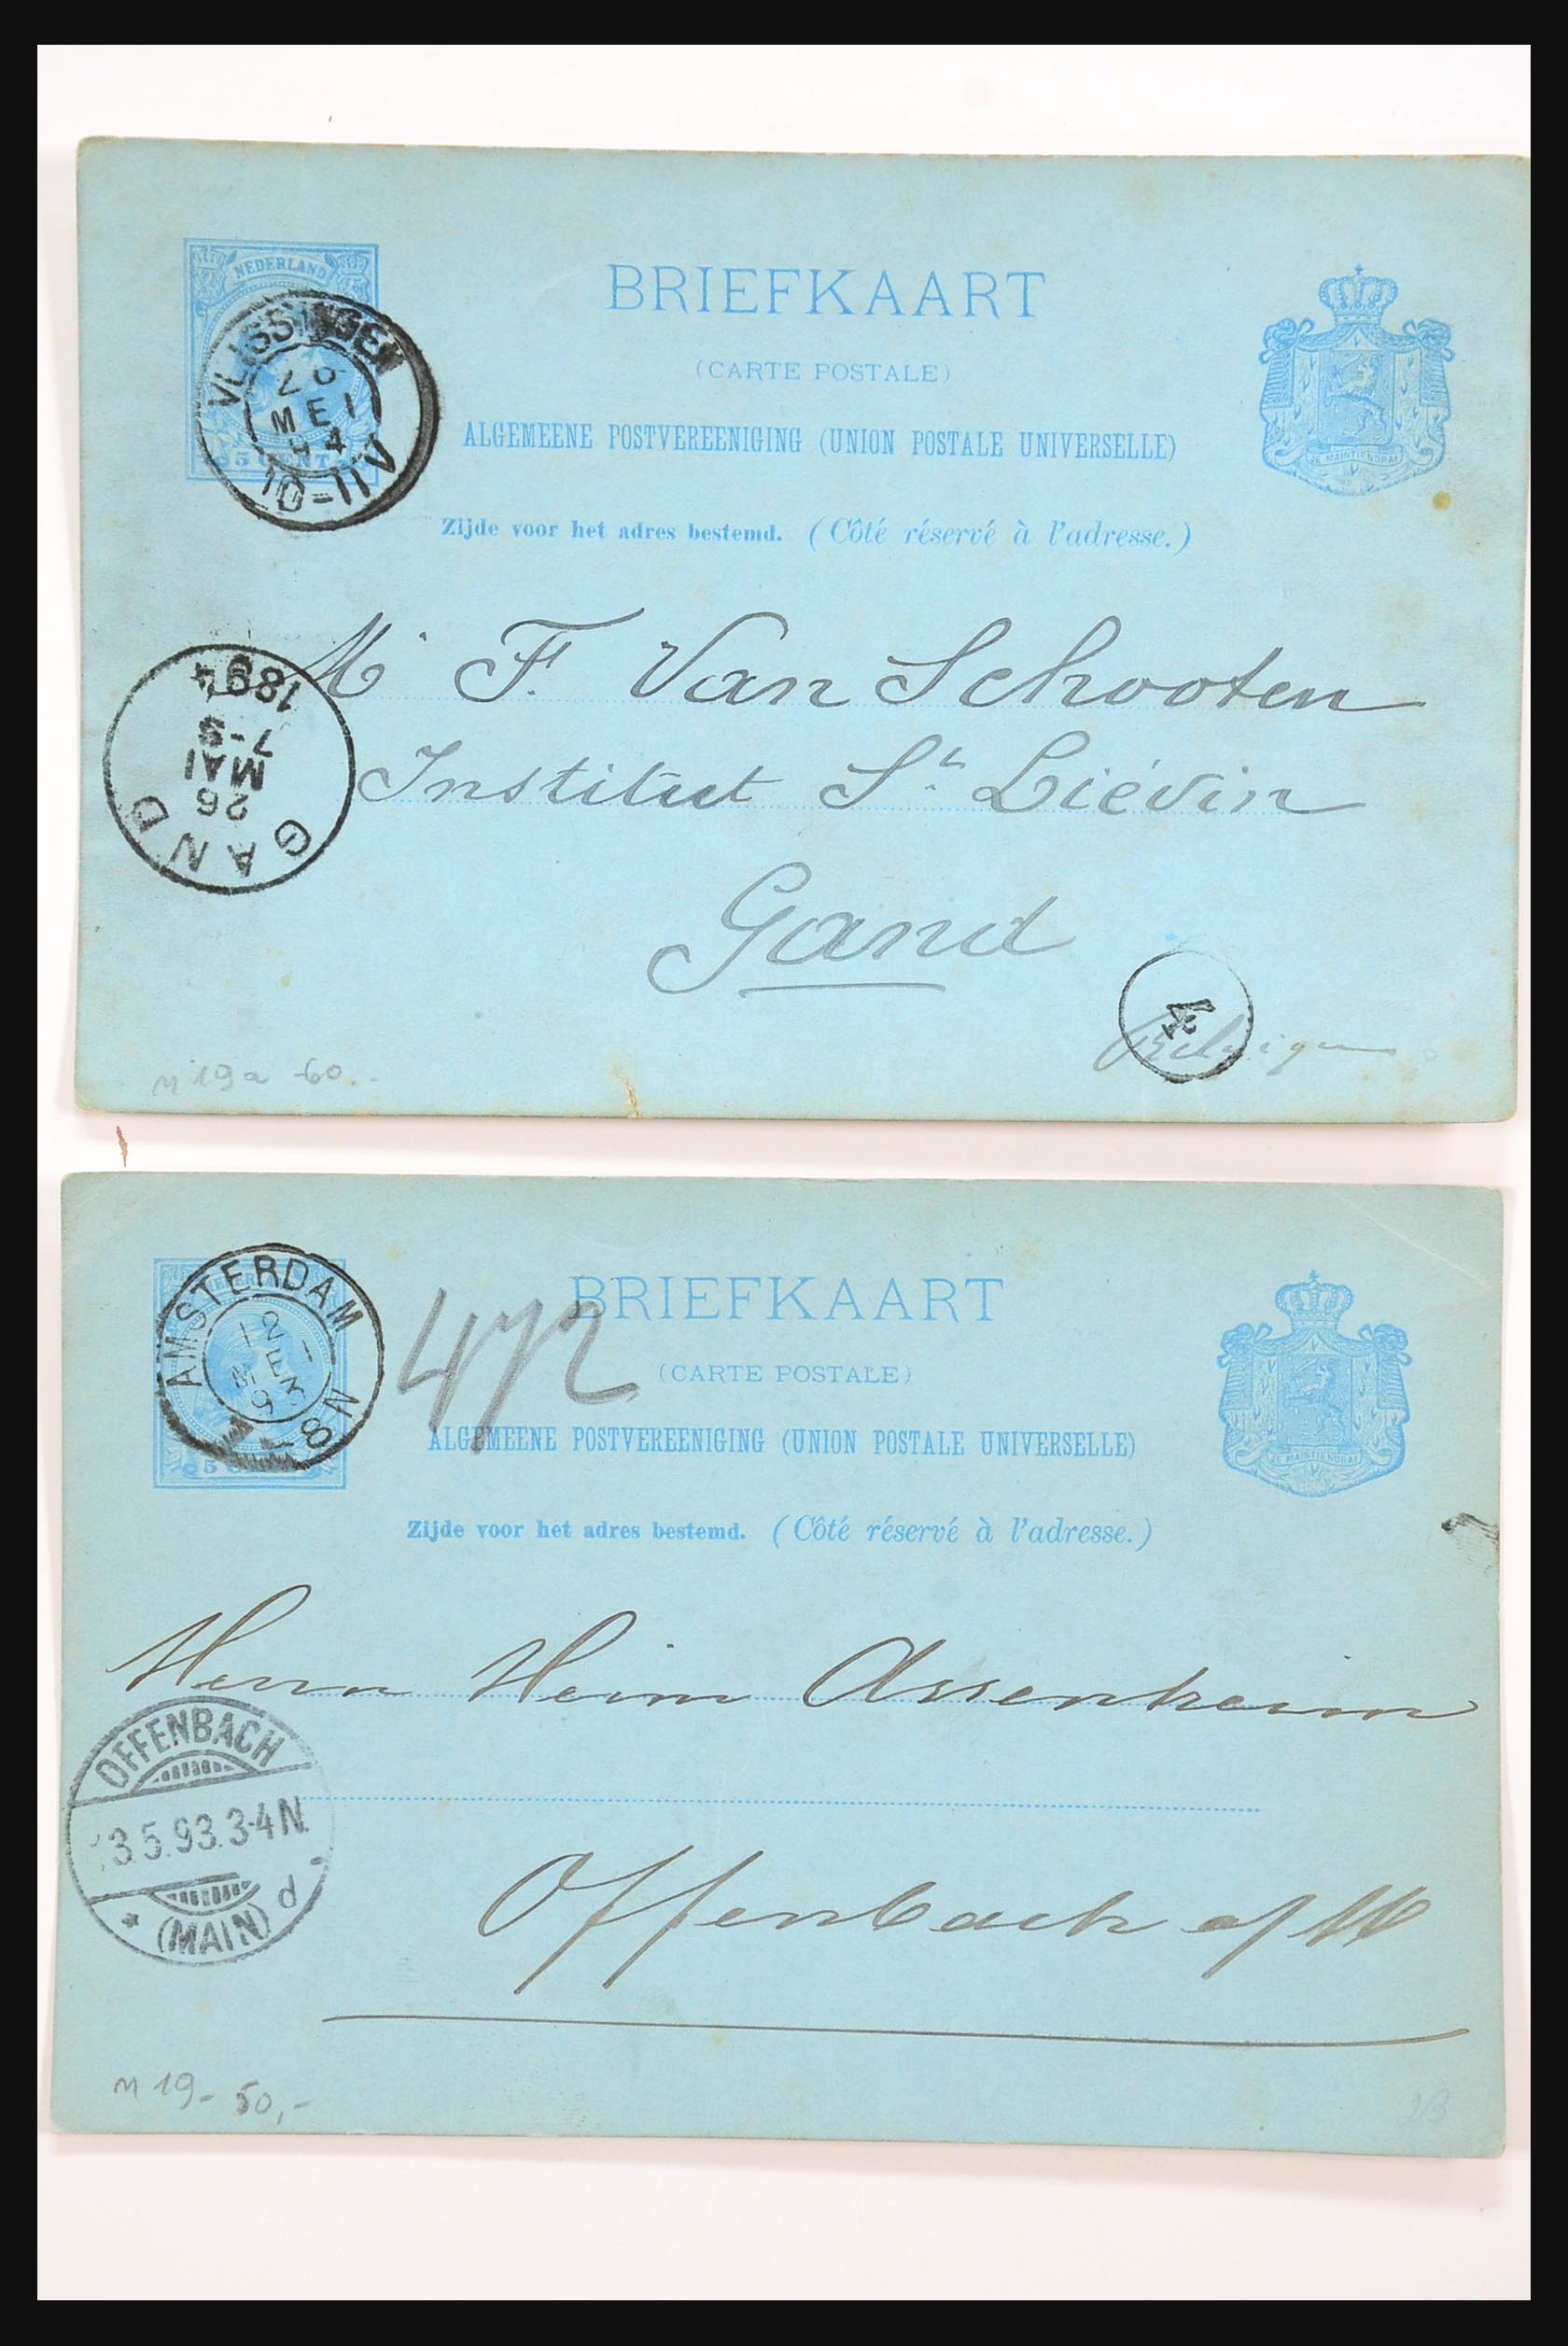 NEDERLAND
BRIEFKAART
(CARTE POSTALE)
ALGEMEENE POSTVEREENIGING (UNION POSTALE UNIVERSELLE)
JE MAINTIENDRAI
5 CENT
VLISSINGEN
MEI
94
10-11V
Zijde voor het adres bestemd. (Côté réservé à l'adresse.)
M. F. Van Schooten
Institut St. Liévin
Gand
Belgique
GAND
26
MAI
7-8
1894
4
n 19a -60.-
BRIEFKAART
(CARTE POSTALE)
ALGEMEENE POSTVEREENIGING (UNION POSTALE UNIVERSELLE)
JE MAINTIENDRAI
5 CENT
AMSTERDAM
12
ME
93
7-8N
Zijde voor het adres bestemd. (Côté réservé à l'adresse.)
Herrn Heim Assenheim
Offenbach a/M
OFFENBACH
13.5.93.3-4N.
(MAIN) d
n 19- 50,-